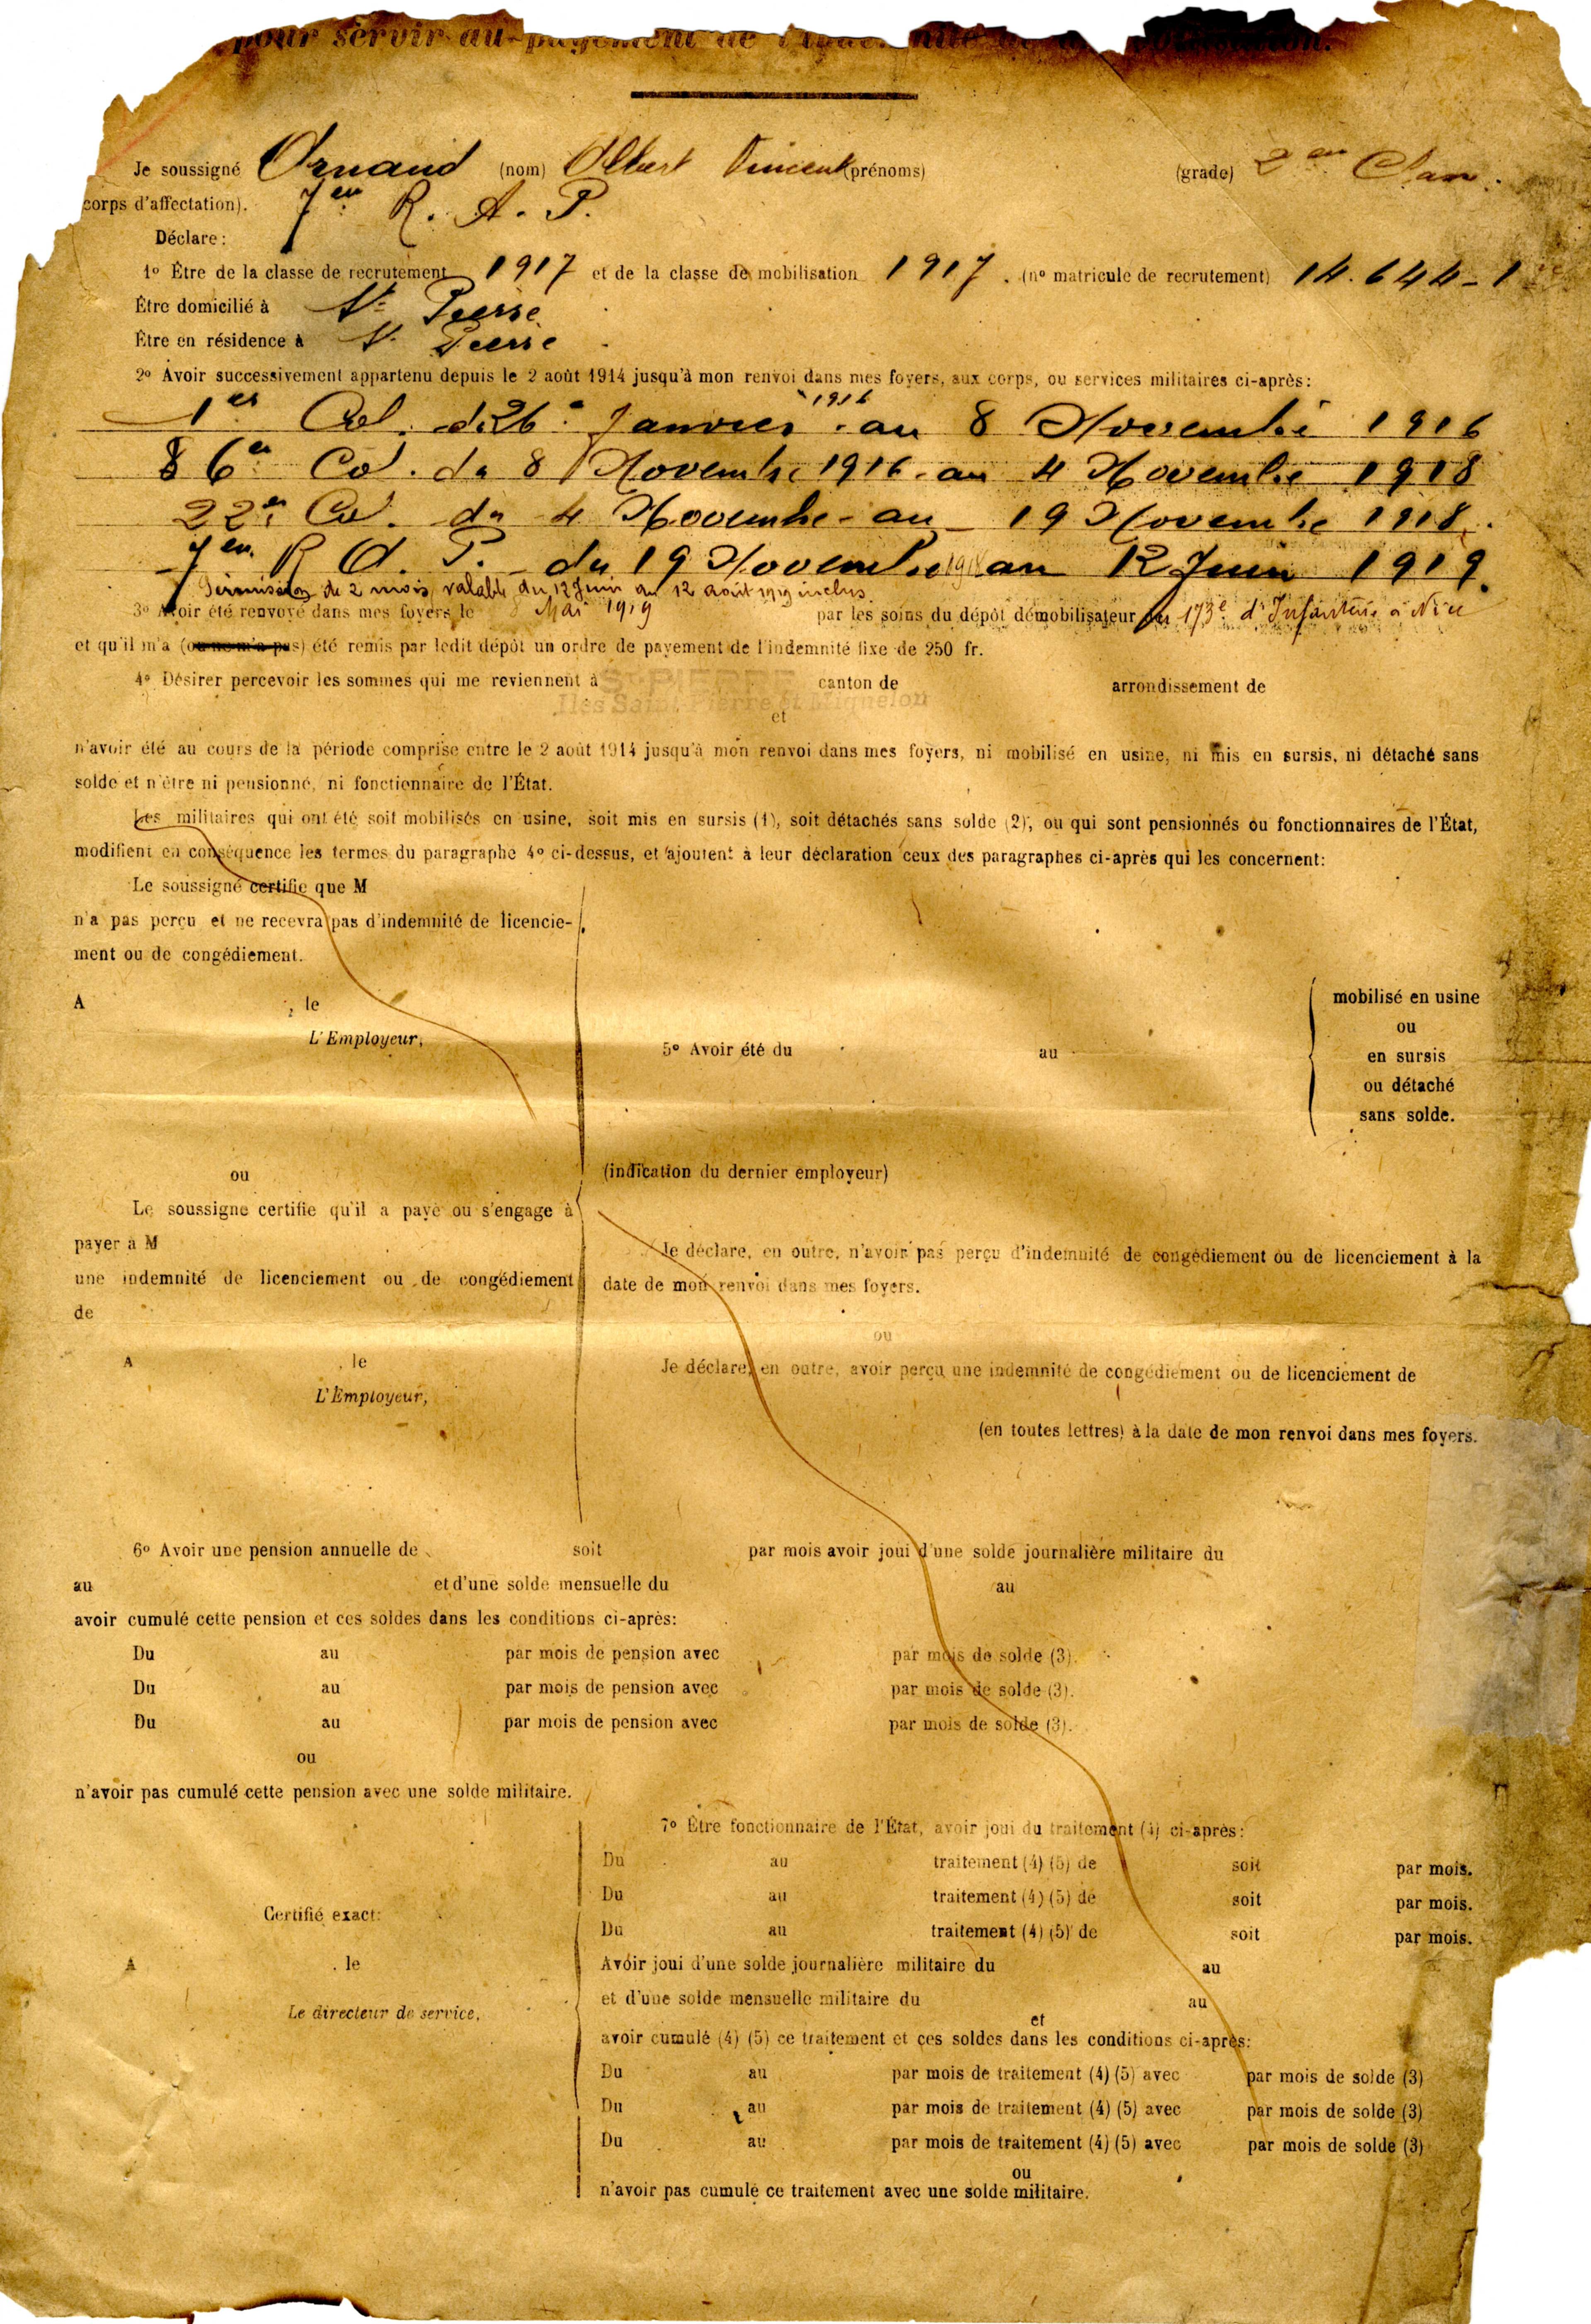 pour servir au payement de
Je soussigné Ornaud (nom) Albert Vincent (prénoms) (grade) 2em Clas.
corps d'affectation). 7em R. A. P.
Déclare:
1º Être de la classe de recrutement 1917 et de la classe de mobilisation 1917. (nº matricule de recrutement) 14.644-1
Être domicilié à St Pierre
Être en résidence à St Pierre
2º Avoir successivement appartenu depuis le 2 août 1914 jusqu'à mon renvoi dans mes foyers, aux corps, ou services militaires ci-après:
1er Col. du 26 Janvier 1916 au 8 Novembre 1916
6em Col. du 8 Novembre 1916 au 4 Novembre 1918
22em Col. du 4 Novembre au 19 Novembre 1918.
7em R A. P. du 19 Novembre 1918 au 12 Juin 1919.
Permission de 2 mois valable du 12 Juin au 12 août 1919 inclus
3º Avoir été renvoyé dans mes foyers le 8 Mai 1919 par les soins du dépôt démobilisateur du 173e d'Infanterie à Nice
et qu'il m'a (ou ne m'a pas) été remis par ledit dépôt un ordre de payement de l'indemnité fixe de 250 fr.
4º Désirer percevoir les sommes qui me reviennent à St PIERRE canton de arrondissement de
Iles Saint-Pierre et Miquelon
et
n'avoir été au cours de la période comprise entre le 2 août 1914 jusqu'à mon renvoi dans mes foyers, ni mobilisé en usine, ni mis en sursis, ni détaché sans
solde et n'être ni pensionné, ni fonctionnaire de l'État.
Les militaires qui ont été soit mobilisés en usine, soit mis en sursis (1), soit détachés sans solde (2), ou qui sont pensionnés ou fonctionnaires de l'État,
modifient en conséquence les termes du paragraphe 4º ci-dessus, et ajoutent à leur déclaration ceux des paragraphes ci-après qui les concernent:
Le soussigné certifie que M
n'a pas perçu et ne recevra pas d'indemnité de licencie-
ment ou de congédiement.
A , le
L'Employeur,
5º Avoir été du au
mobilisé en usine
ou
en sursis
ou détaché
sans solde.
ou
(indication du dernier employeur)
Le soussigné certifie qu'il a payé ou s'engage à
payer à M
une indemnité de licenciement ou de congédiement
de
A , le
L'Employeur,
Je déclare, en outre, n'avoir pas perçu d'indemnité de congédiement ou de licenciement à la
date de mon renvoi dans mes foyers.
ou
Je déclare, en outre, avoir perçu une indemnité de congédiement ou de licenciement de
(en toutes lettres) à la date de mon renvoi dans mes foyers.
6º Avoir une pension annuelle de soit par mois avoir joui d'une solde journalière militaire du
au et d'une solde mensuelle du au
avoir cumulé cette pension et ces soldes dans les conditions ci-après:
Du au par mois de pension avec par mois de solde (3).
Du au par mois de pension avec par mois de solde (3).
Du au par mois de pension avec par mois de solde (3).
ou
n'avoir pas cumulé cette pension avec une solde militaire.
Certifié exact:
A , le
Le directeur de service,
7º Être fonctionnaire de l'État, avoir joui du traitement (4) ci-après:
Du au traitement (4) (5) de soit par mois.
Du au traitement (4) (5) de soit par mois.
Du au traitement (4) (5) de soit par mois.
Avoir joui d'une solde journalière militaire du au
et d'une solde mensuelle militaire du au
et
avoir cumulé (4) (5) ce traitement et ces soldes dans les conditions ci-après:
Du au par mois de traitement (4) (5) avec par mois de solde (3)
Du au par mois de traitement (4) (5) avec par mois de solde (3)
Du au par mois de traitement (4) (5) avec par mois de solde (3)
ou
n'avoir pas cumulé ce traitement avec une solde militaire.